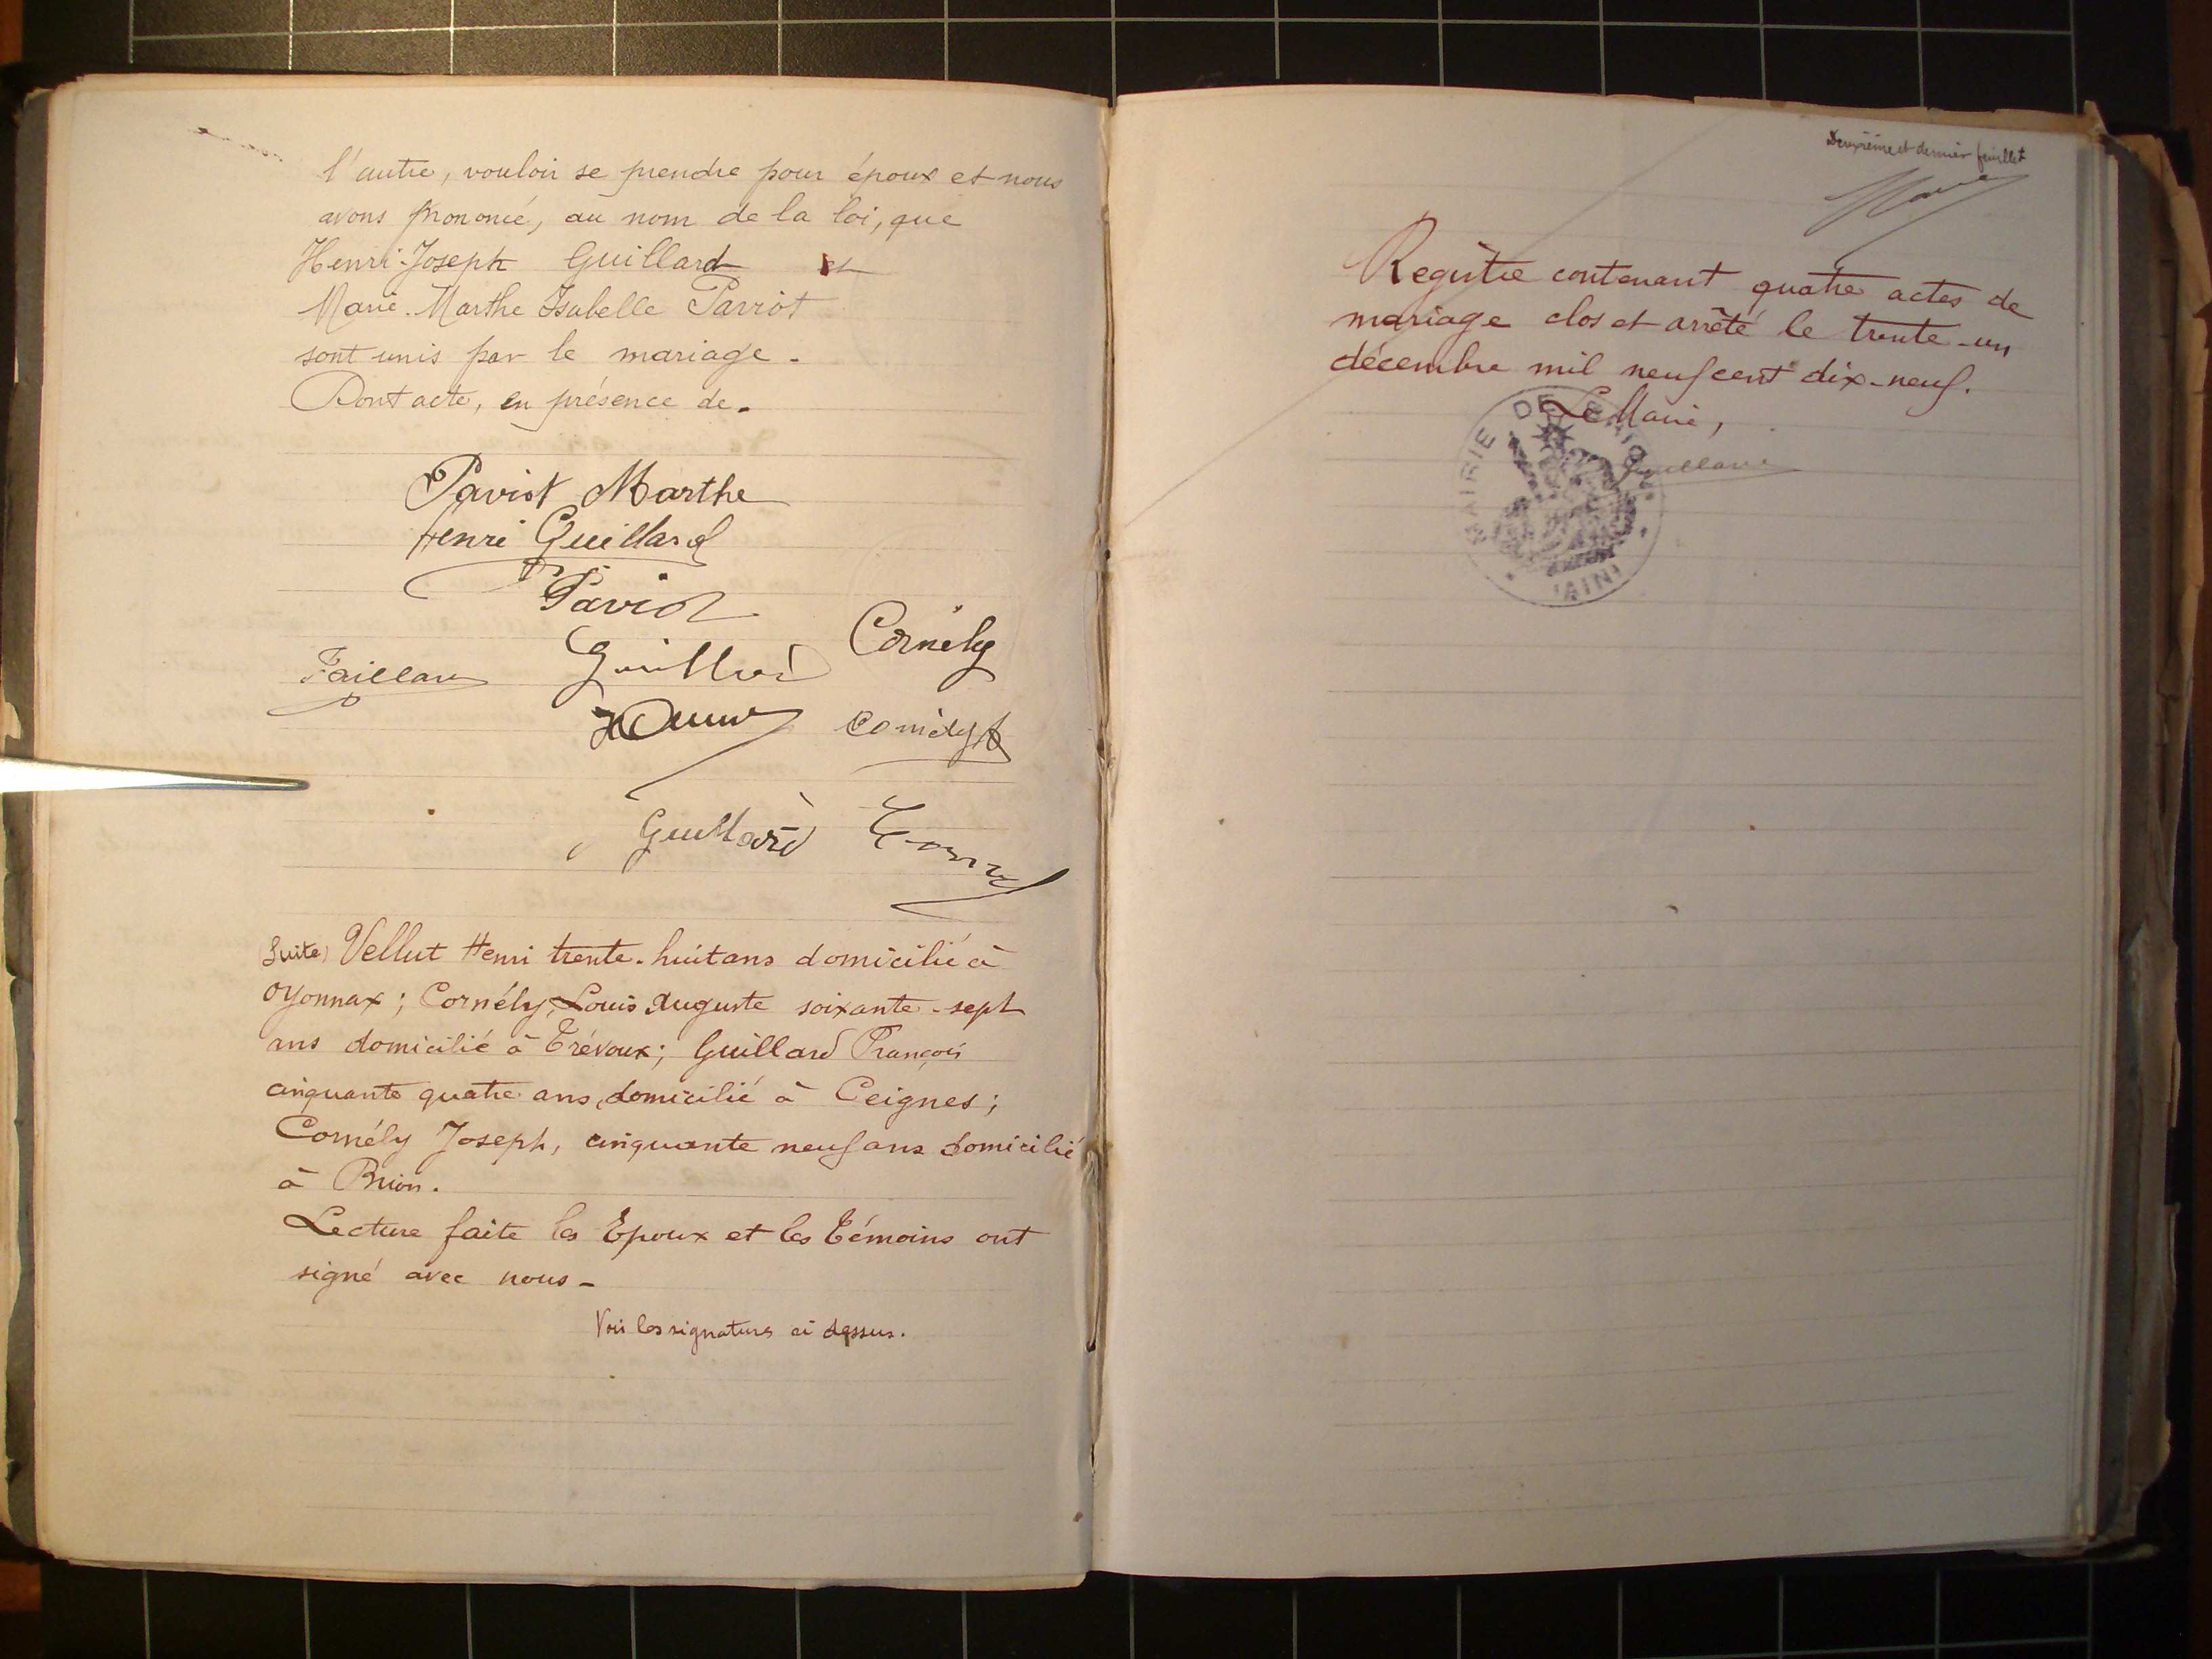 l'autre, vouloir se prendre pour époux et nous
avons prononcé, au nom de la loi, que
Henri-Joseph Guillard et
Marie-Marthe Isabelle Paviot
sont unis par le mariage.
Dont acte, en présence de.
Paviot Marthe
Henri Guillard
Paviot
Cornély
Guillard
Cornély
Guillard
(Suite) Vellut Henri trente-huit ans domicilié à
Oyonnax; Cornély, Louis Auguste soixante-sept
ans domicilié à Trévoux; Guillard François
cinquante quatre ans, domicilié à Ceignes;
Cornély Joseph, cinquante neuf ans domicilié
à Brion.
Lecture faite les Epoux et les Témoins ont
signé avec nous-
Voir les signatures ci dessus.
Deuxième et dernier feuillet
Registre contenant quatre actes de
mariage clos et arrêté le trente-un
décembre mil neuf cent dix-neuf.
Le Maire,
MAIRIE DE
(AIN)